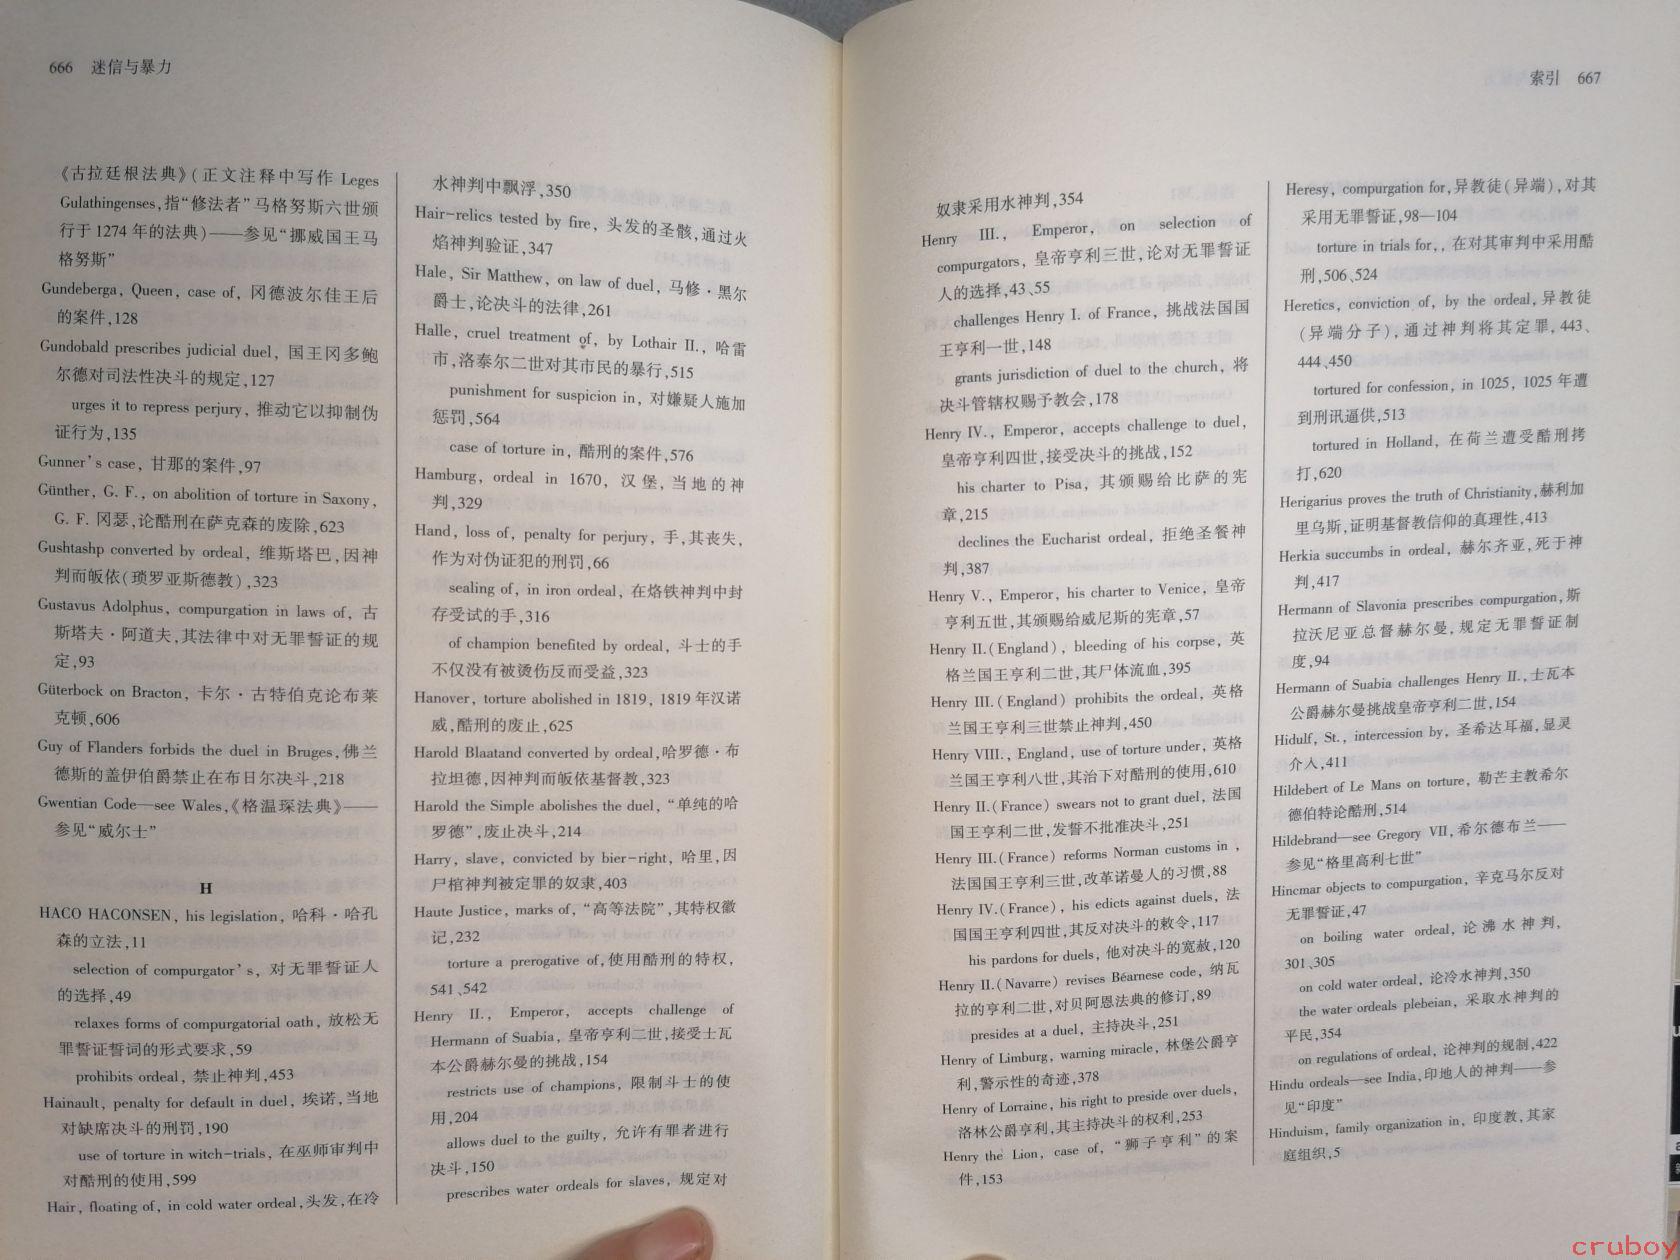 666 迷信与暴力
《古拉廷根法典》(正文注释中写作 Leges
Gulathingenses,指“修法者”马格努斯六世颁
行于1274年的法典)——参见“挪威国王马
格努斯”
Gundeberga, Queen, case of, 冈德波尔佳王后
的案件,128
Gundobald prescribes judicial duel, 国王冈多鲍
尔德对司法性决斗的规定,127
urges it to repress perjury, 推动它以抑制伪
证行为,135
Gunner's case, 甘那的案件,97
Günther, G. F., on abolition of torture in Saxony,
G. F. 冈瑟,论酷刑在萨克森的废除,623
Gushtashp converted by ordeal, 维斯塔巴,因神
判而皈依(琐罗亚斯德教),323
Gustavus Adolphus, compurgation in laws of, 古
斯塔夫·阿道夫,其法律中对无罪誓证的规
定,93
Güterbock on Bracton, 卡尔·古特伯克论布莱
克顿,606
Guy of Flanders forbids the duel in Bruges,佛兰
德斯的盖伊伯爵禁止在布日尔决斗,218
Gwentian Code—see Wales,《格温琛法典》——
参见“威尔士”
H
HACO HACONSEN, his legislation, 哈科·哈孔
森的立法,11
selection of compurgator's, 对无罪誓证人
的选择,49
relaxes forms of compurgatorial oath, 放松无
罪誓证誓词的形式要求,59
prohibits ordeal, 禁止神判,453
Hainault, penalty for default in duel, 埃诺,当地
对缺席决斗的刑罚,190
use of torture in witch-trials, 在巫师审判中
对酷刑的使用,599
Hair, floating of, in cold water ordeal,头发,在冷
水神判中飘浮,350
Hair-relics tested by fire, 头发的圣骸,通过火
焰神判验证,347
Hale, Sir Matthew, on law of duel, 马修·黑尔
爵士,论决斗的法律,261
Halle, cruel treatment of, by Lothair II., 哈雷
市,洛泰尔二世对其市民的暴行,515
punishment for suspicion in, 对嫌疑人施加
惩罚,564
case of torture in, 酷刑的案件,576
Hamburg, ordeal in 1670, 汉堡,当地的神
判,329
Hand, loss of, penalty for perjury, 手,其丧失,
作为对伪证犯的刑罚,66
sealing of, in iron ordeal, 在烙铁神判中封
存受试的手,316
of champion benefited by ordeal, 斗士的手
不仅没有被烫伤反而受益,323
Hanover, torture abolished in 1819, 1819年汉诺
威,酷刑的废止,625
Harold Blaatand converted by ordeal,哈罗德·布
拉坦德,因神判而皈依基督教,323
Harold the Simple abolishes the duel, “单纯的哈
罗德”,废止决斗,214
Harry, slave, convicted by bier-right, 哈里,因
尸棺神判被定罪的奴隶,403
Haute Justice, marks of, “高等法院”,其特权徽
记,232
torture a prerogative of,使用酷刑的特权,
541、542
Henry II., Emperor, accepts challenge of
Hermann of Suabia, 皇帝亨利二世,接受士瓦
本公爵赫尔曼的挑战,154
restricts use of champions, 限制斗士的使
用,204
allows duel to the guilty, 允许有罪者进行
决斗,150
prescribes water ordeals for slaves, 规定对
索引 667
奴隶采用水神判,354
Henry III., Emperor, on selection of
compurgators, 皇帝亨利三世,论对无罪誓证
人的选择,43、55
challenges Henry I. of France, 挑战法国国
王亨利一世,148
grants jurisdiction of duel to the church, 将
决斗管辖权赐予教会,178
Henry IV., Emperor, accepts challenge to duel,
皇帝亨利四世,接受决斗的挑战,152
his charter to Pisa, 其颁赐给比萨的宪
章,215
declines the Eucharist ordeal, 拒绝圣餐神
判,387
Henry V., Emperor, his charter to Venice, 皇帝
亨利五世,其颁赐给威尼斯的宪章,57
Henry II.(England), bleeding of his corpse, 英
格兰国王亨利二世,其尸体流血,395
Henry III.(England) prohibits the ordeal, 英格
兰国王亨利三世禁止神判,450
Henry VIII., England, use of torture under, 英格
兰国王亨利八世,其治下对酷刑的使用,610
Henry II.(France) swears not to grant duel, 法国
国王亨利二世,发誓不批准决斗,251
Henry III.(France) reforms Norman customs in,
法国国王亨利三世,改革诺曼人的习惯,88
Henry IV.(France), his edicts against duels, 法
国国王亨利四世,其反对决斗的敕令,117
his pardons for duels, 他对决斗的宽赦,120
Henry II.(Navarre) revises Béarnese code, 纳瓦
拉的亨利二世,对贝阿恩法典的修订,89
presides at a duel, 主持决斗,251
Henry of Limburg, warning miracle, 林堡公爵亨
利,警示性的奇迹,378
Henry of Lorraine, his right to preside over duels,
洛林公爵亨利,其主持决斗的权利,253
Henry the Lion, case of, “狮子亨利”的案
件,153
Heresy, compurgation for,异教徒(异端),对其
采用无罪誓证,98—104
torture in trials for,, 在对其审判中采用酷
刑,506、524
Heretics, conviction of, by the ordeal,异教徒
(异端分子),通过神判将其定罪,443、
444、450
tortured for confession, in 1025, 1025年遭
到刑讯逼供,513
tortured in Holland, 在荷兰遭受酷刑拷
打,620
Herigarius proves the truth of Christianity,赫利加
里乌斯,证明基督教信仰的真理性,413
Herkia succumbs in ordeal, 赫尔齐亚,死于神
判,417
Hermann of Slavonia prescribes compurgation,斯
拉沃尼亚总督赫尔曼,规定无罪誓证制
度,94
Hermann of Suabia challenges Henry II.,士瓦本
公爵赫尔曼挑战皇帝亨利二世,154
Hidulf, St., intercession by, 圣希达耳福,显灵
介入,411
Hildebert of Le Mans on torture, 勒芒主教希尔
德伯特论酷刑,514
Hildebrand—see Gregory VII,希尔德布兰——
参见“格里高利七世”
Hincmar objects to compurgation, 辛克马尔反对
无罪誓证,47
on boiling water ordeal, 论沸水神判,
301、305
on cold water ordeal, 论冷水神判,350
the water ordeals plebeian, 采取水神判的
平民,354
on regulations of ordeal, 论神判的规制,422
Hindu ordeals—see India,印地人的神判——参
见“印度”
Hinduism, family organization in, 印度教,其家
庭组织,5
cruboy